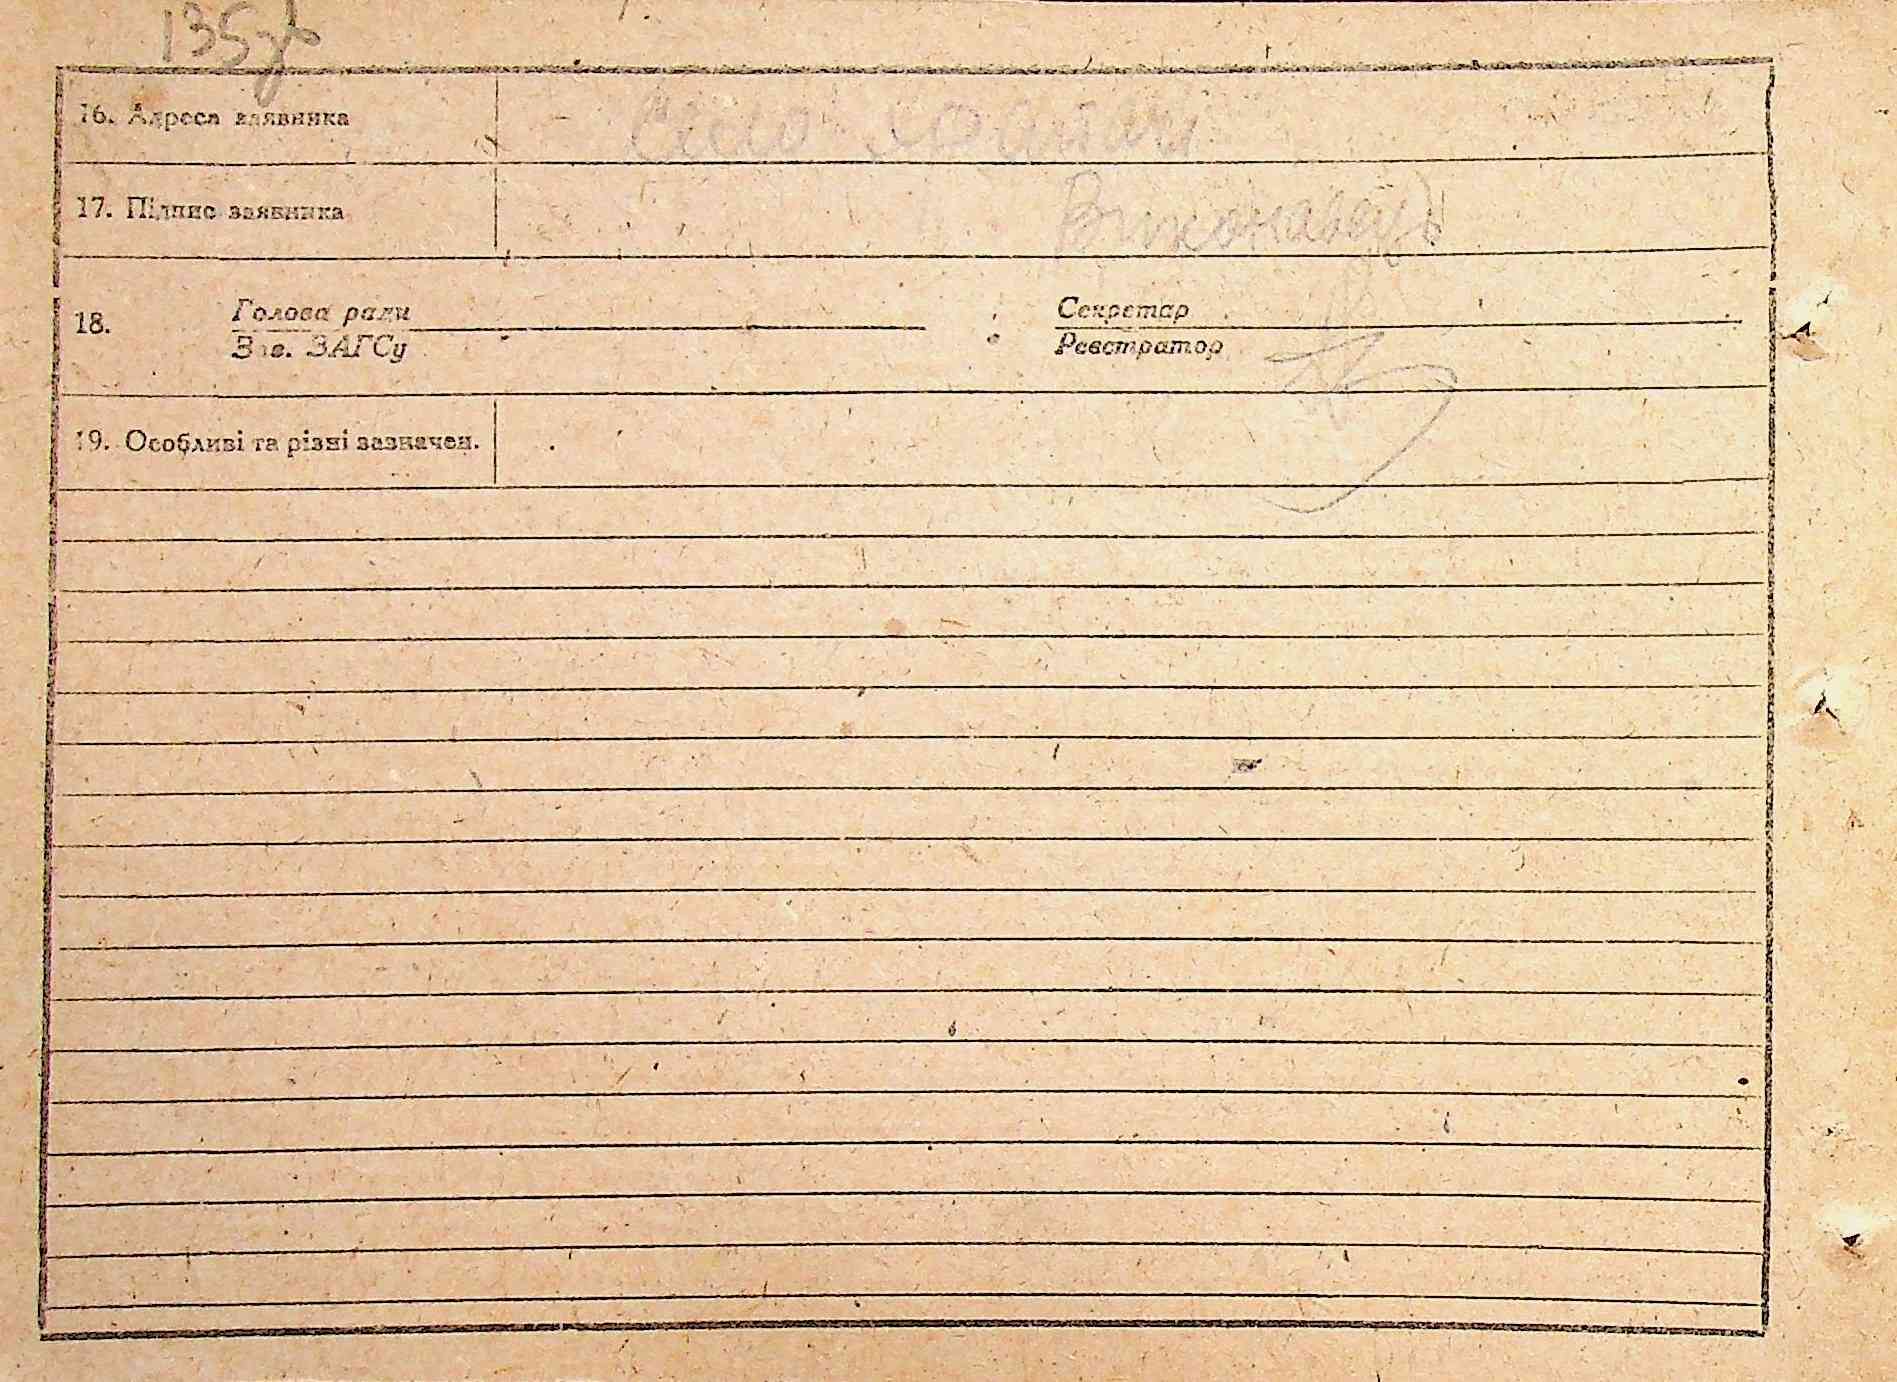 135зв
16. Адреса заявника село
17. Підпис заявника Виконавець
18. Голова ради Секретар
Зав. ЗАГСу Реєстратор
19. Особливі та різні зазначен.